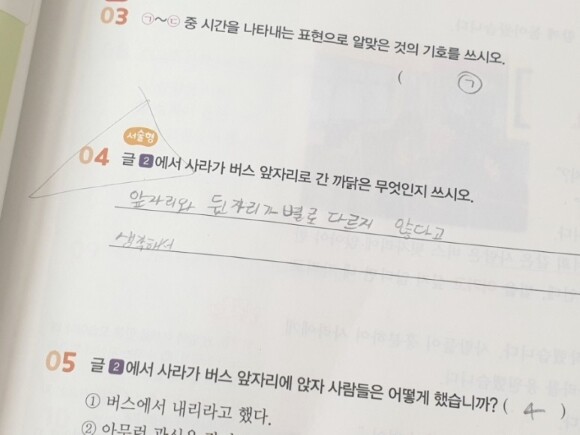 03 ㉠~㉢ 중 시간을 나타내는 표현으로 알맞은 것의 기호를 쓰시오.
( ㉠
서술형
04 글 2 에서 사라가 버스 앞자리로 간 까닭은 무엇인지 쓰시오.
앞자리와 뒷자리가 별로 다르지 않다고
생각해서
05 글 2 에서 사라가 버스 앞자리에 앉자 사람들은 어떻게 했습니까? ( 4 )
① 버스에서 내리라고 했다.
② 아무런